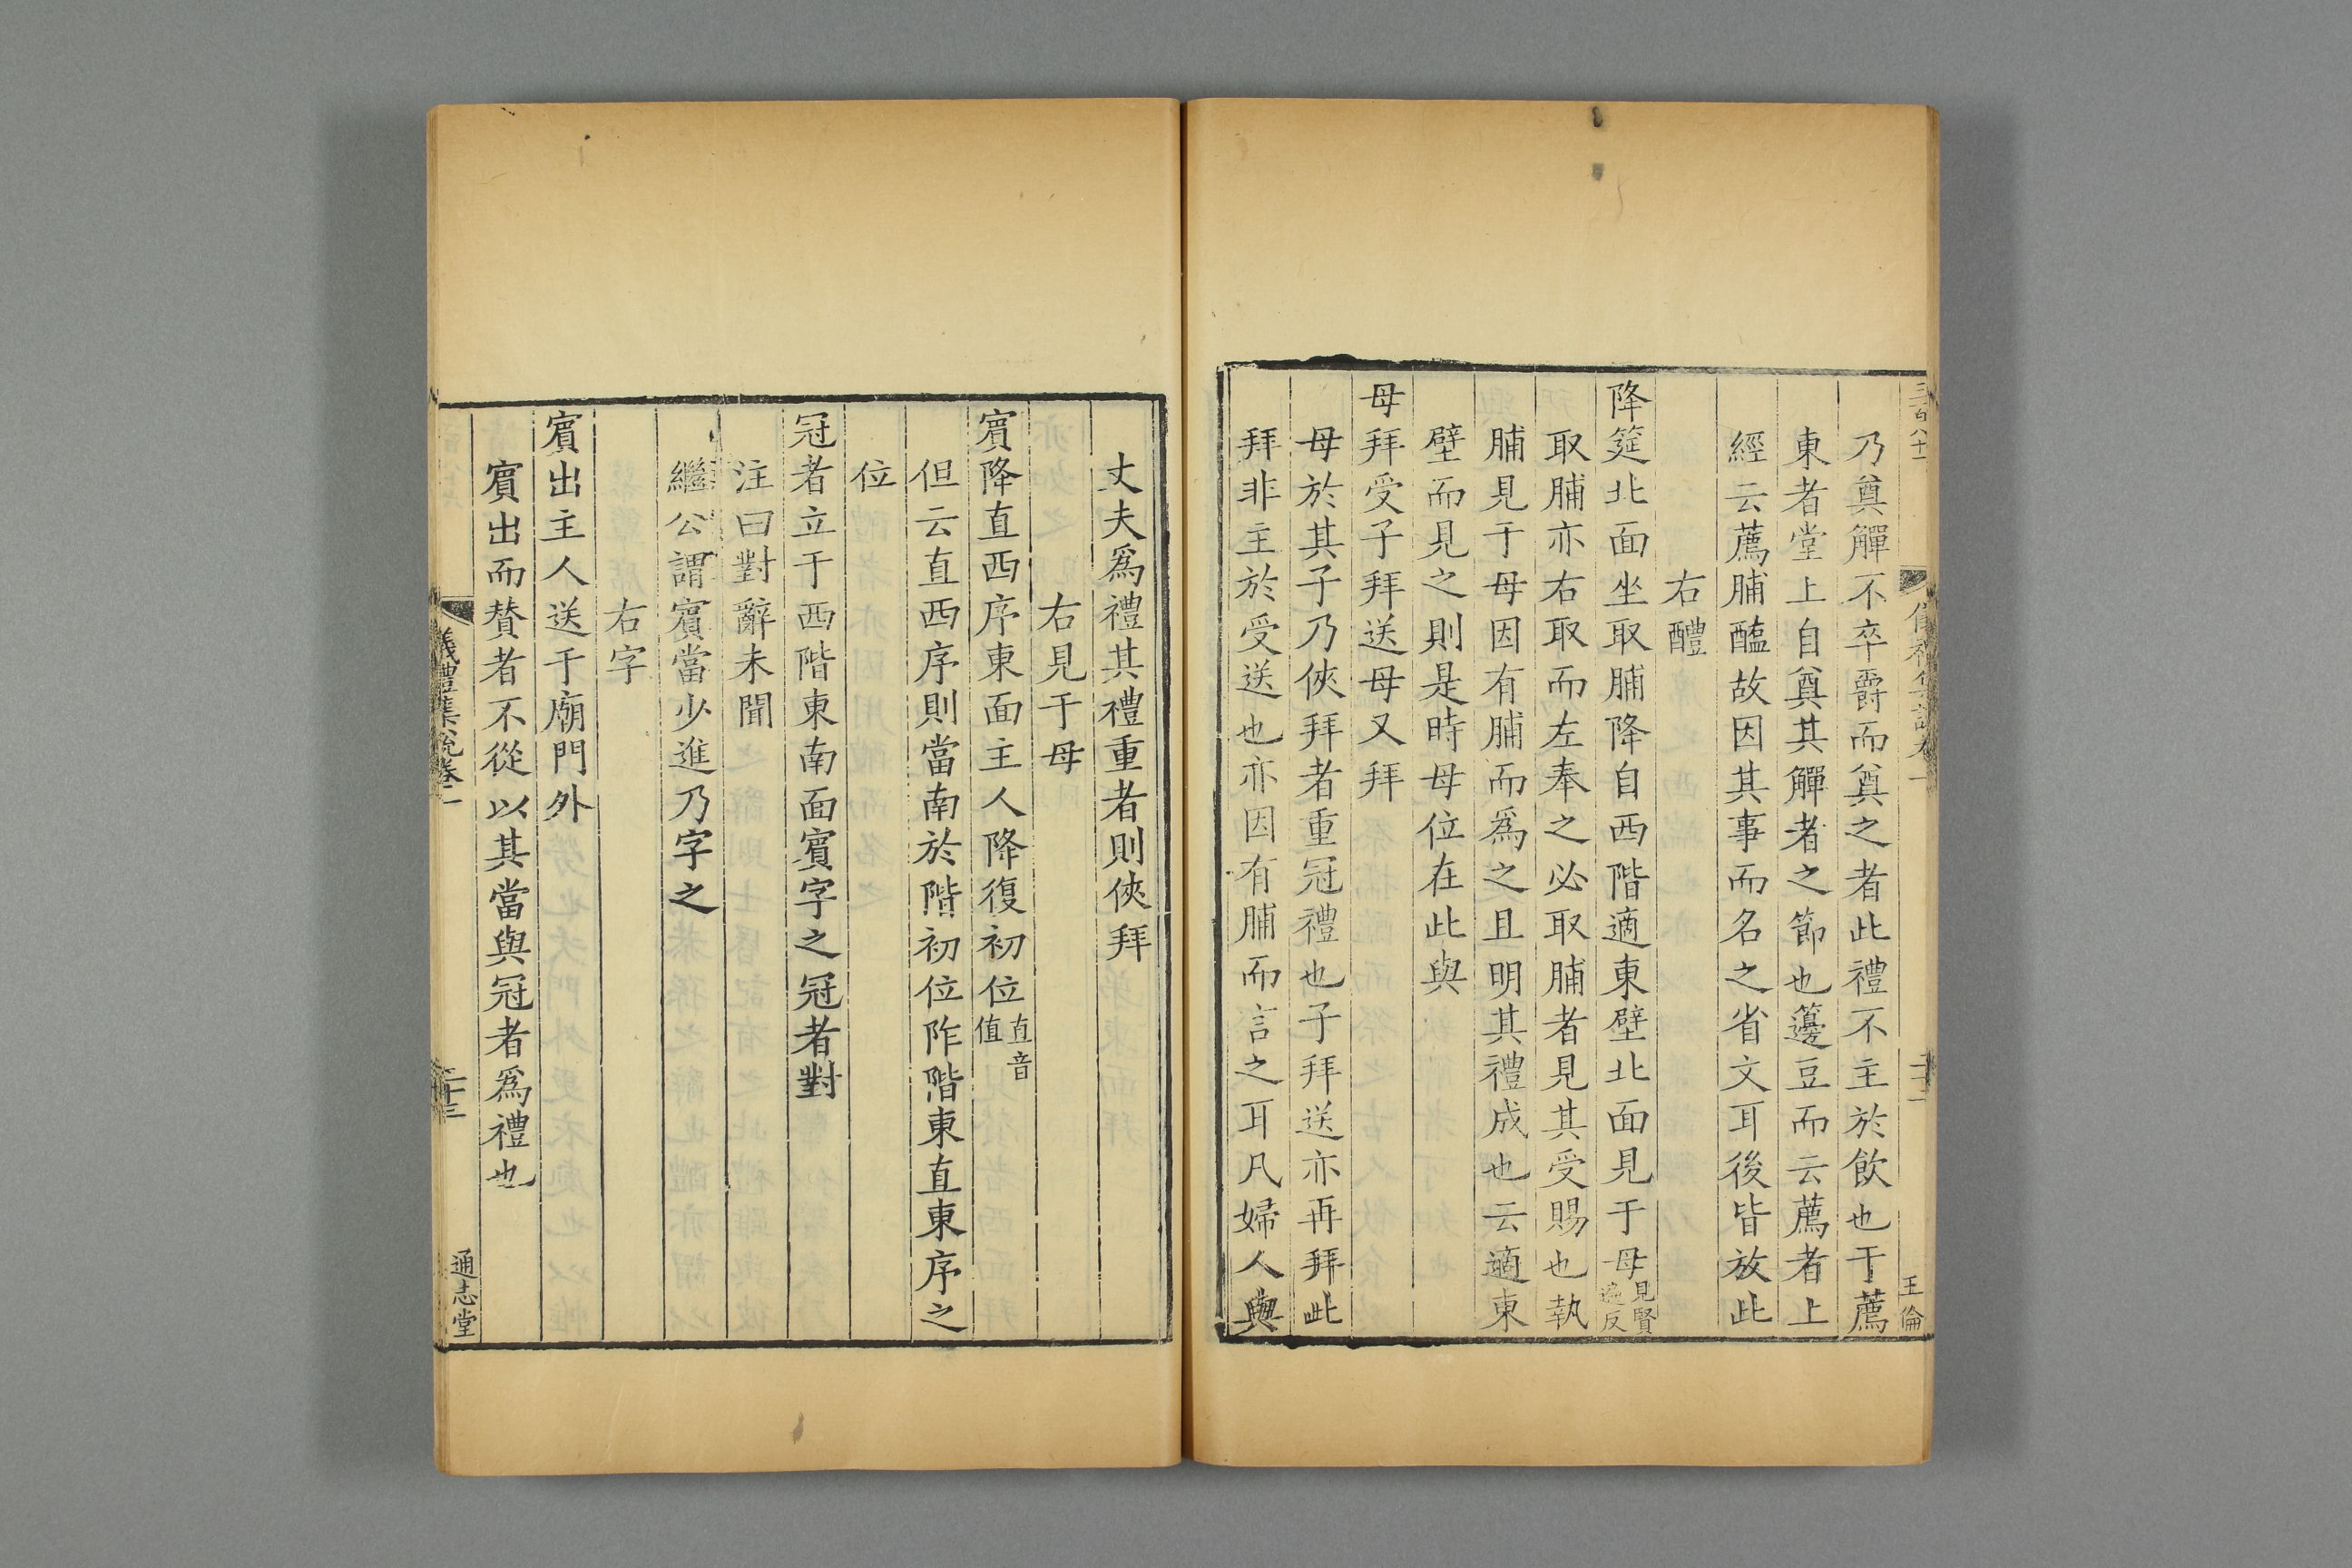 乃奠觶不卒爵而奠之者此禮不主於飲也于薦
東者堂上自奠其觶者之節也籩豆而云薦者上
經云薦脯醢故因其事而名之省文耳後皆放此
右醴
降筵北面坐取脯降自西階適東壁北面見于母見賢遍反
取脯亦右取而左奉之必取脯者見其受賜也執
脯見于母因有脯而爲之且明其禮成也云適東
壁而見之則是時母位在此與
母拜受子拜送母又拜
母於其子乃俠拜者重冠禮也子拜送亦再拜此
拜非主於受送也亦因有脯而言之耳凡婦人與
王倫
丈夫爲禮其禮重者則俠拜
右見于母
賓降直西序東面主人降復初位直音值
但云直西序則當南於階初位阼階東直東序之
位
冠者立于西階東南面賓字之冠者對
注曰對辭未聞
繼公謂賓當少進乃字之
右字
賓出主人送于廟門外
賓出而贊者不從以其當與冠者爲禮也
儀禮集說卷一
二十三
通志堂